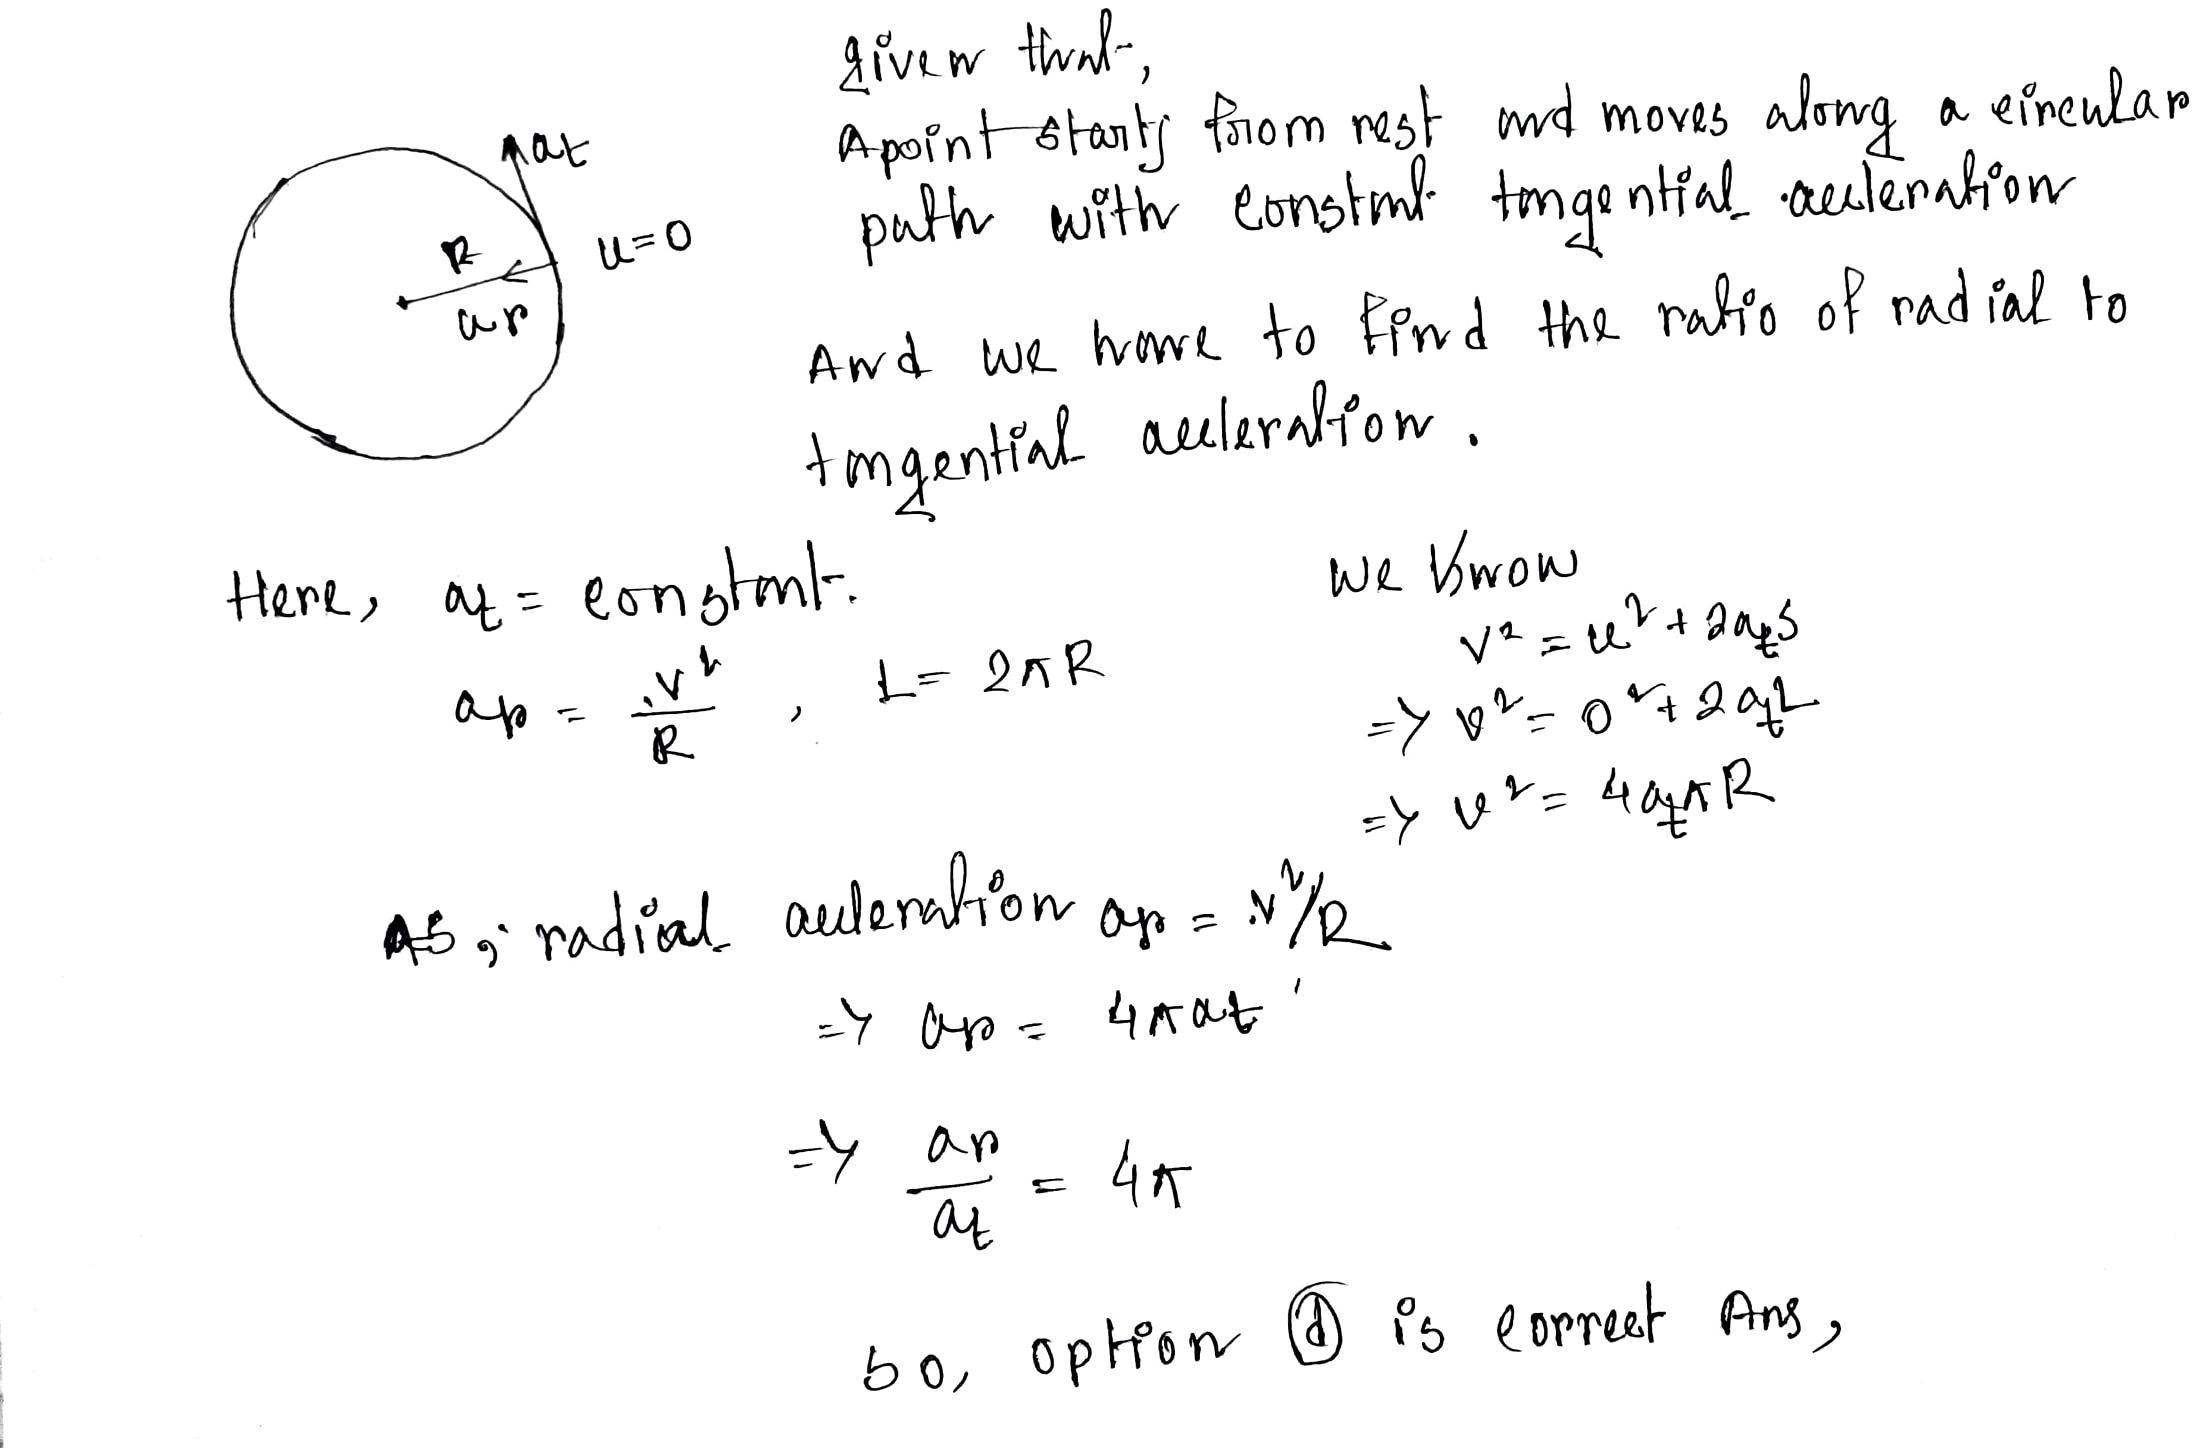 given that,
A point starts from rest and moves along a circular
path with constant tangential accleration
And we have to find the ratio of radial to
tangential accleration.
at
u=0
R
ar
Here, at = constant.
ar = v²/R , L = 2πR
we know
v² = u² + 2atS
=> v² = 0² + 2atL
=> v² = 4atπR
As, radial accleration ar = v²/R
=> ar = 4πat
=> ar/at = 4π
So, option (d) is correct Ans,